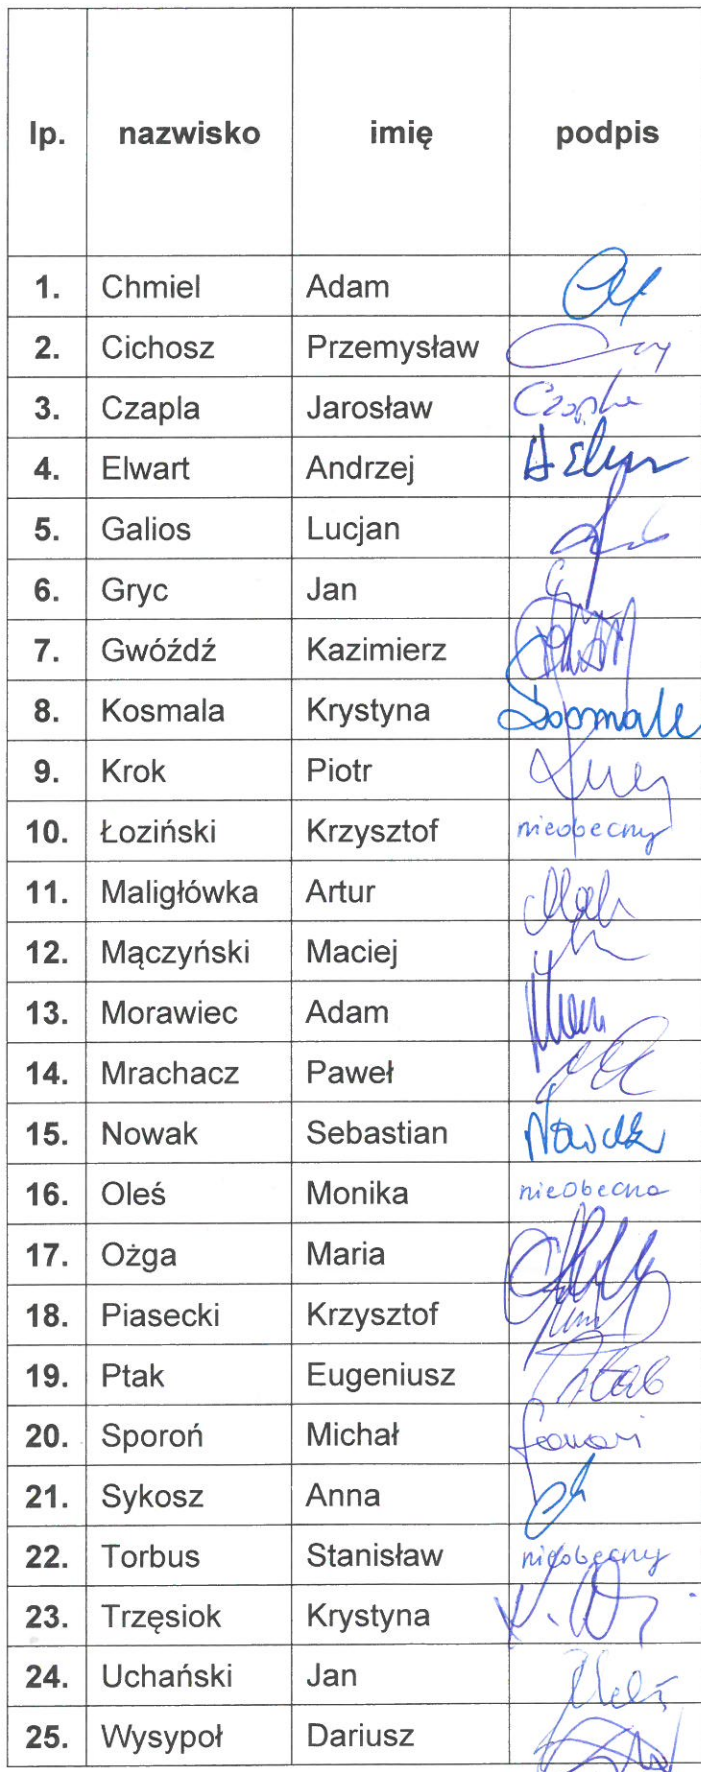 lp. nazwisko imię podpis
1. Chmiel Adam
2. Cichosz Przemysław
3. Czapla Jarosław Czapla
4. Elwart Andrzej
5. Galios Lucjan
6. Gryc Jan
7. Gwóźdź Kazimierz
8. Kosmala Krystyna
9. Krok Piotr
10. Łoziński Krzysztof nieobecny
11. Maligłówka Artur
12. Mączyński Maciej
13. Morawiec Adam
14. Mrachacz Paweł
15. Nowak Sebastian Nowak
16. Oleś Monika nieobecna
17. Ożga Maria
18. Piasecki Krzysztof
19. Ptak Eugeniusz Ptak
20. Sporoń Michał
21. Sykosz Anna
22. Torbus Stanisław nieobecny
23. Trzęsiok Krystyna
24. Uchański Jan
25. Wysypoł Dariusz